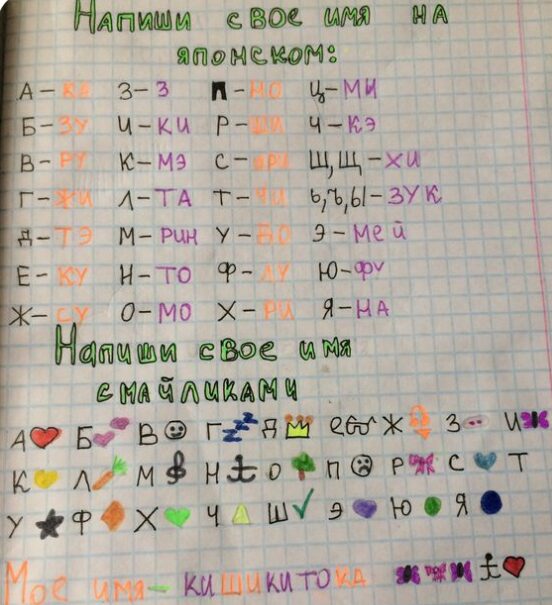 Напиши свое имя на
японском:
А-КА З-З П-НО Ц-МИ
Б-ЗУ И-КИ Р-ШИ Ч-КЭ
В-РУ К-МЭ С-АРИ Ш,Щ-ХИ
Г-ЖИ Л-ТА Т-ЧИ Ь,Ъ,Ы-ЗУК
Д-ТЭ М-РИН У-ДО Э-МЕЙ
Е-КУ Н-ТО Ф-ЛУ Ю-ФУ
Ж-СУ О-МО Х-РИ Я-НА
Напиши свое имя
смайликами
А Б В Г Д Е Ж З И
К Л М Н О П Р С Т
У Ф Х Ч Ш Э Ю Я
Мое имя- КИШИКИТОКА